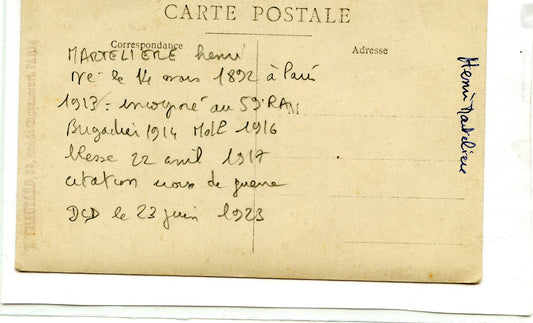 CARTE POSTALE
Correspondance
Adresse
MARTELIERE henri
Né le 14 mars 1892 à Paris
1913 = incorporé au 59 RAM
Brigadier 1914 MdL 1916
blessé 22 avril 1917
citation croix de guerre
DCD le 23 juin 1923
Henri Martelière